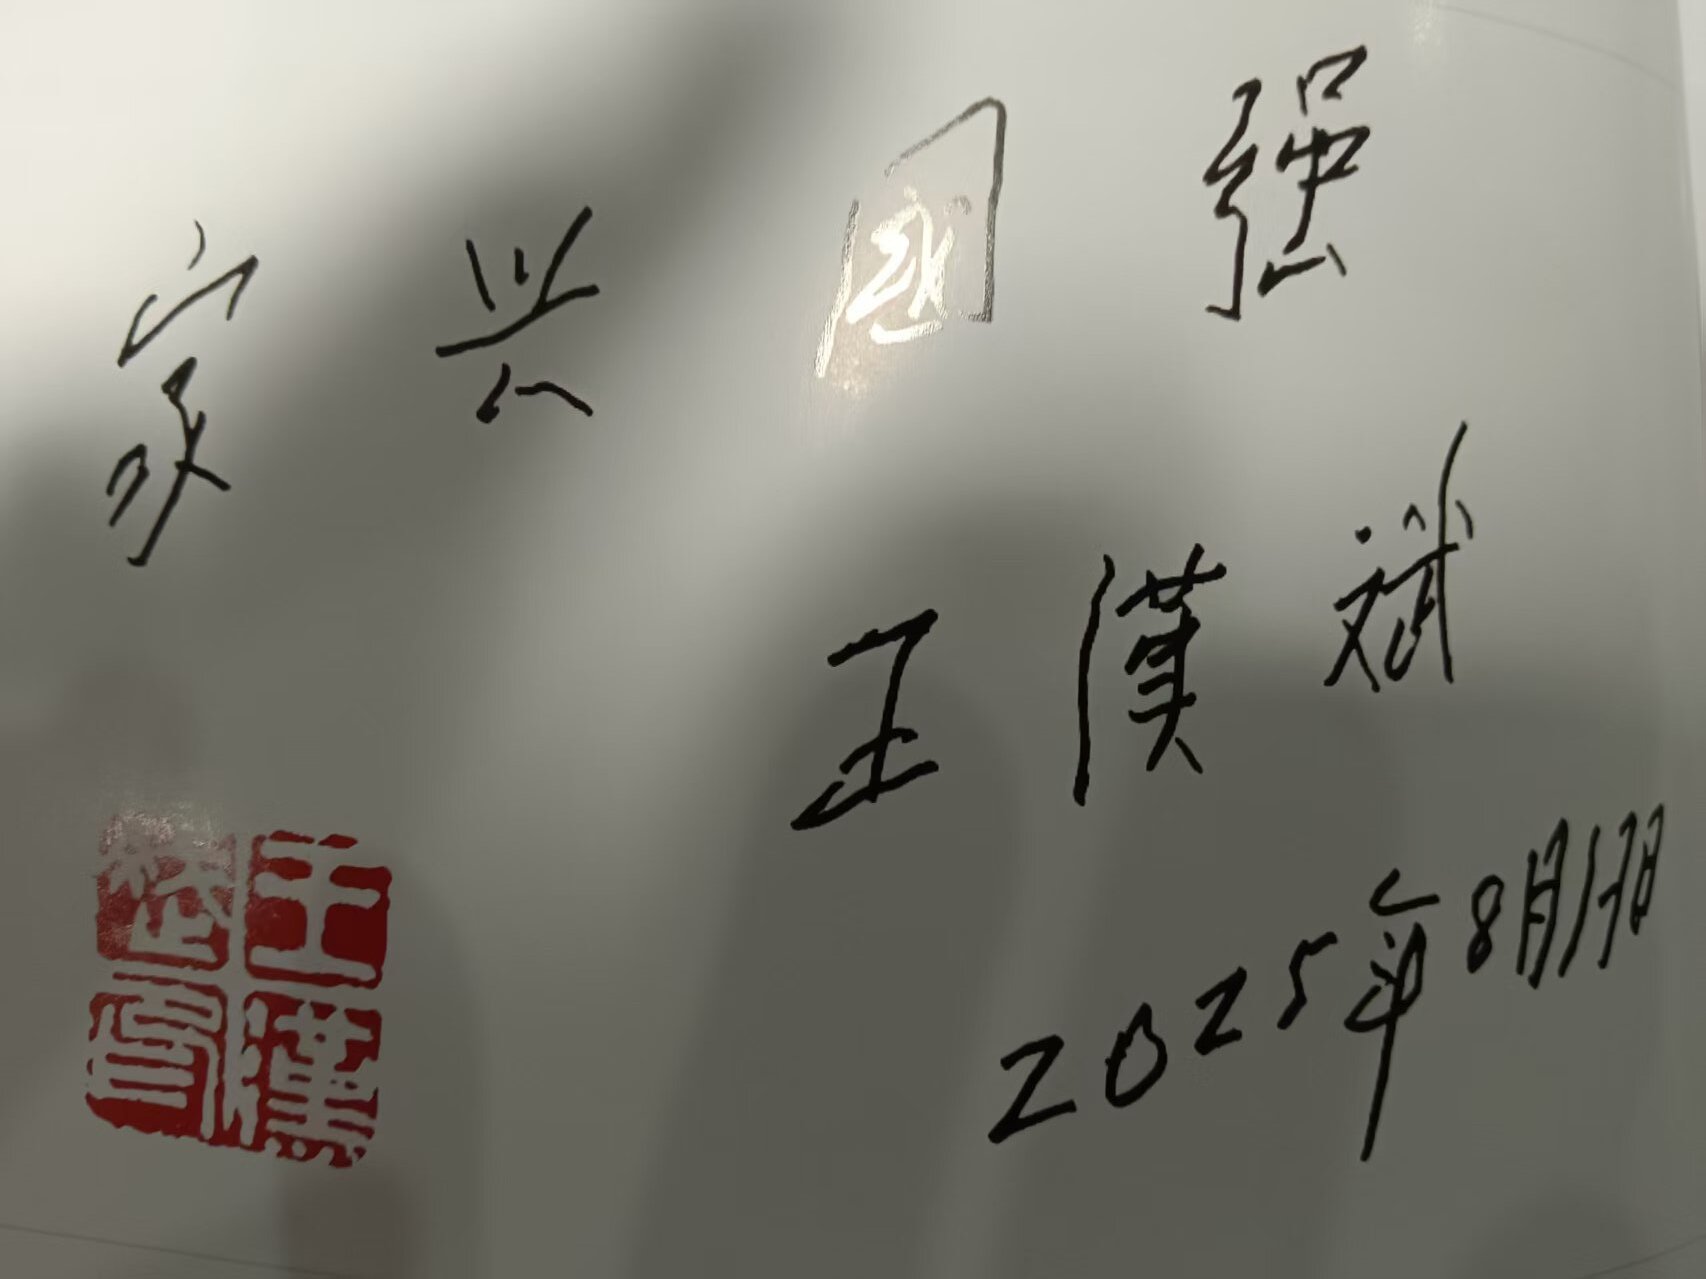 家兴国强
王漢斌
2025年8月1日
王漢